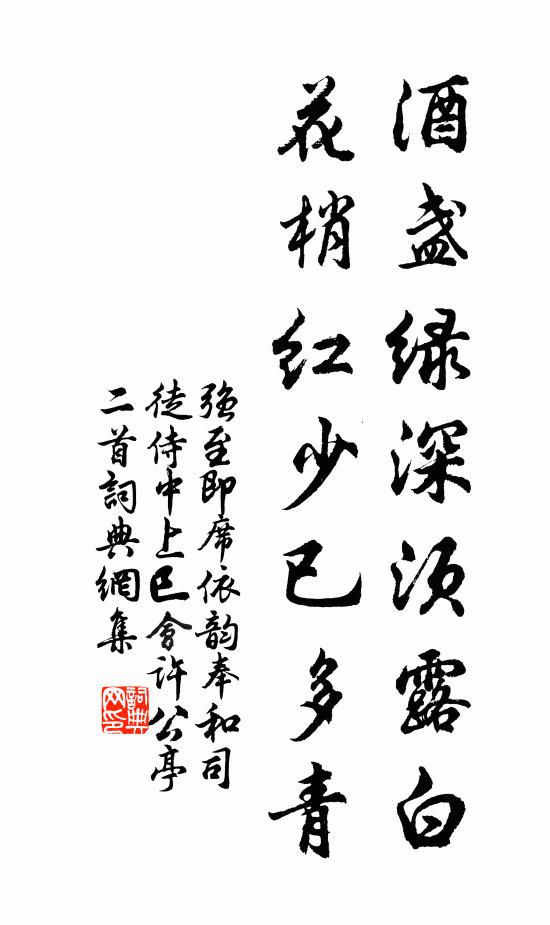 酒盏绿深须露白
花梢红少已多青
强至即席依韵奉和司
徒侍中上巳会许公亭
二首詞典網集
詞典
网印